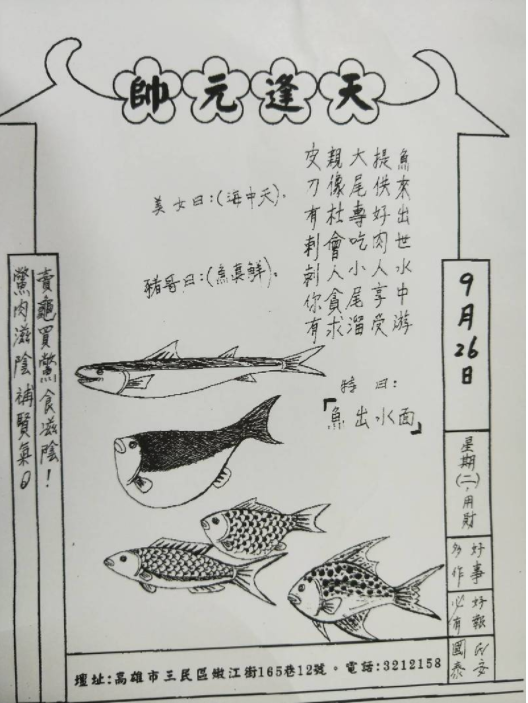 天逢元帥
魚來出世水中游
提供好肉人享受
大尾專吃小尾溜
親像社會人貪求
皮刀有刺剝你有
美女曰:(海中天)。
豬哥曰:(魚真鮮)。
曰:
「魚出水面」
9月26日
星期(二),用財
好事
多作
好報
必有
民安
國泰
賣龜買鱉食滋陰!
鱉肉滋陰補
壇址:高雄市三民區嫩江街165巷12號。電話:3212158